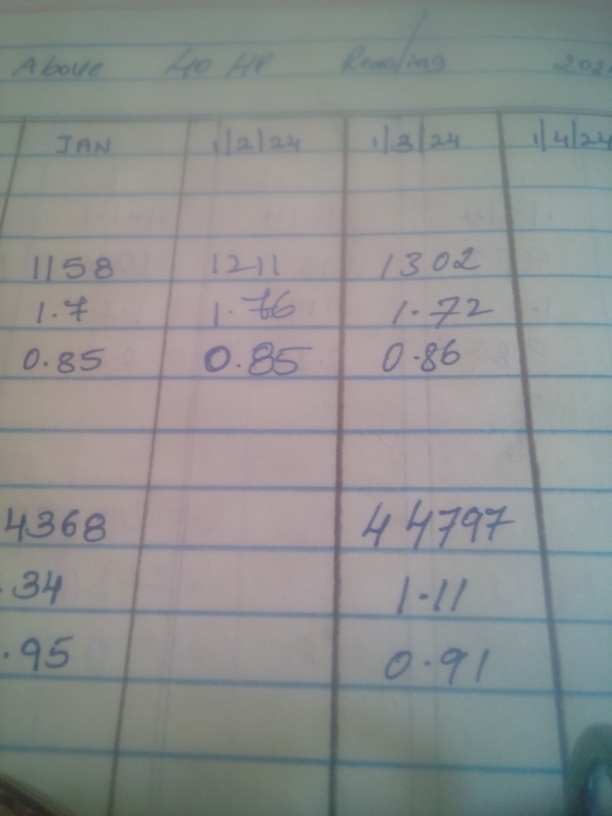 Above 40 HP Reading 202
JAN 1/2/24 1/3/24 1/4/24
1158 1211 1302
1.7 1.76 1.72
0.85 0.85 0.86
4368 44797
.34 1.11
.95 0.91